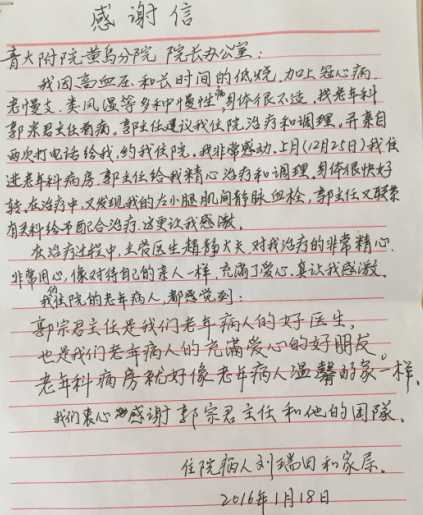 感谢信
青大附院黄岛分院 院长办公室:
我因高血压和长时间的低烧,加上冠心病
老慢支,类风湿等多种慢性病,身体很不适,找老年科
郭宗君主任看病,郭主任建议我住院治疗和调理,并亲自
两次打电话给我,约我住院,我非常感动,上月(12月25日)我住
进老年科病房,郭主任给我精心治疗和调理,身体很快好
转。在治疗中,又发现我的左小腿肌间静脉血栓,郭主任又联系
有关科给予配合治疗,这更让我感激。
在治疗过程中,主管医生赵静大夫,对我治疗的非常精心,
非常用心,像对待自己的亲人一样,充满了爱心,真让我感激。
我们住院的老年病人,都感觉到:
郭宗君主任是我们老年病人的好医生,
也是我们老年病人的充满爱心的好朋友。
老年科病房就好像老年病人温馨的家一样,
我们衷心感谢郭宗君主任和他的团队。
住院病人刘瑞田和家属。
2016年1月18日